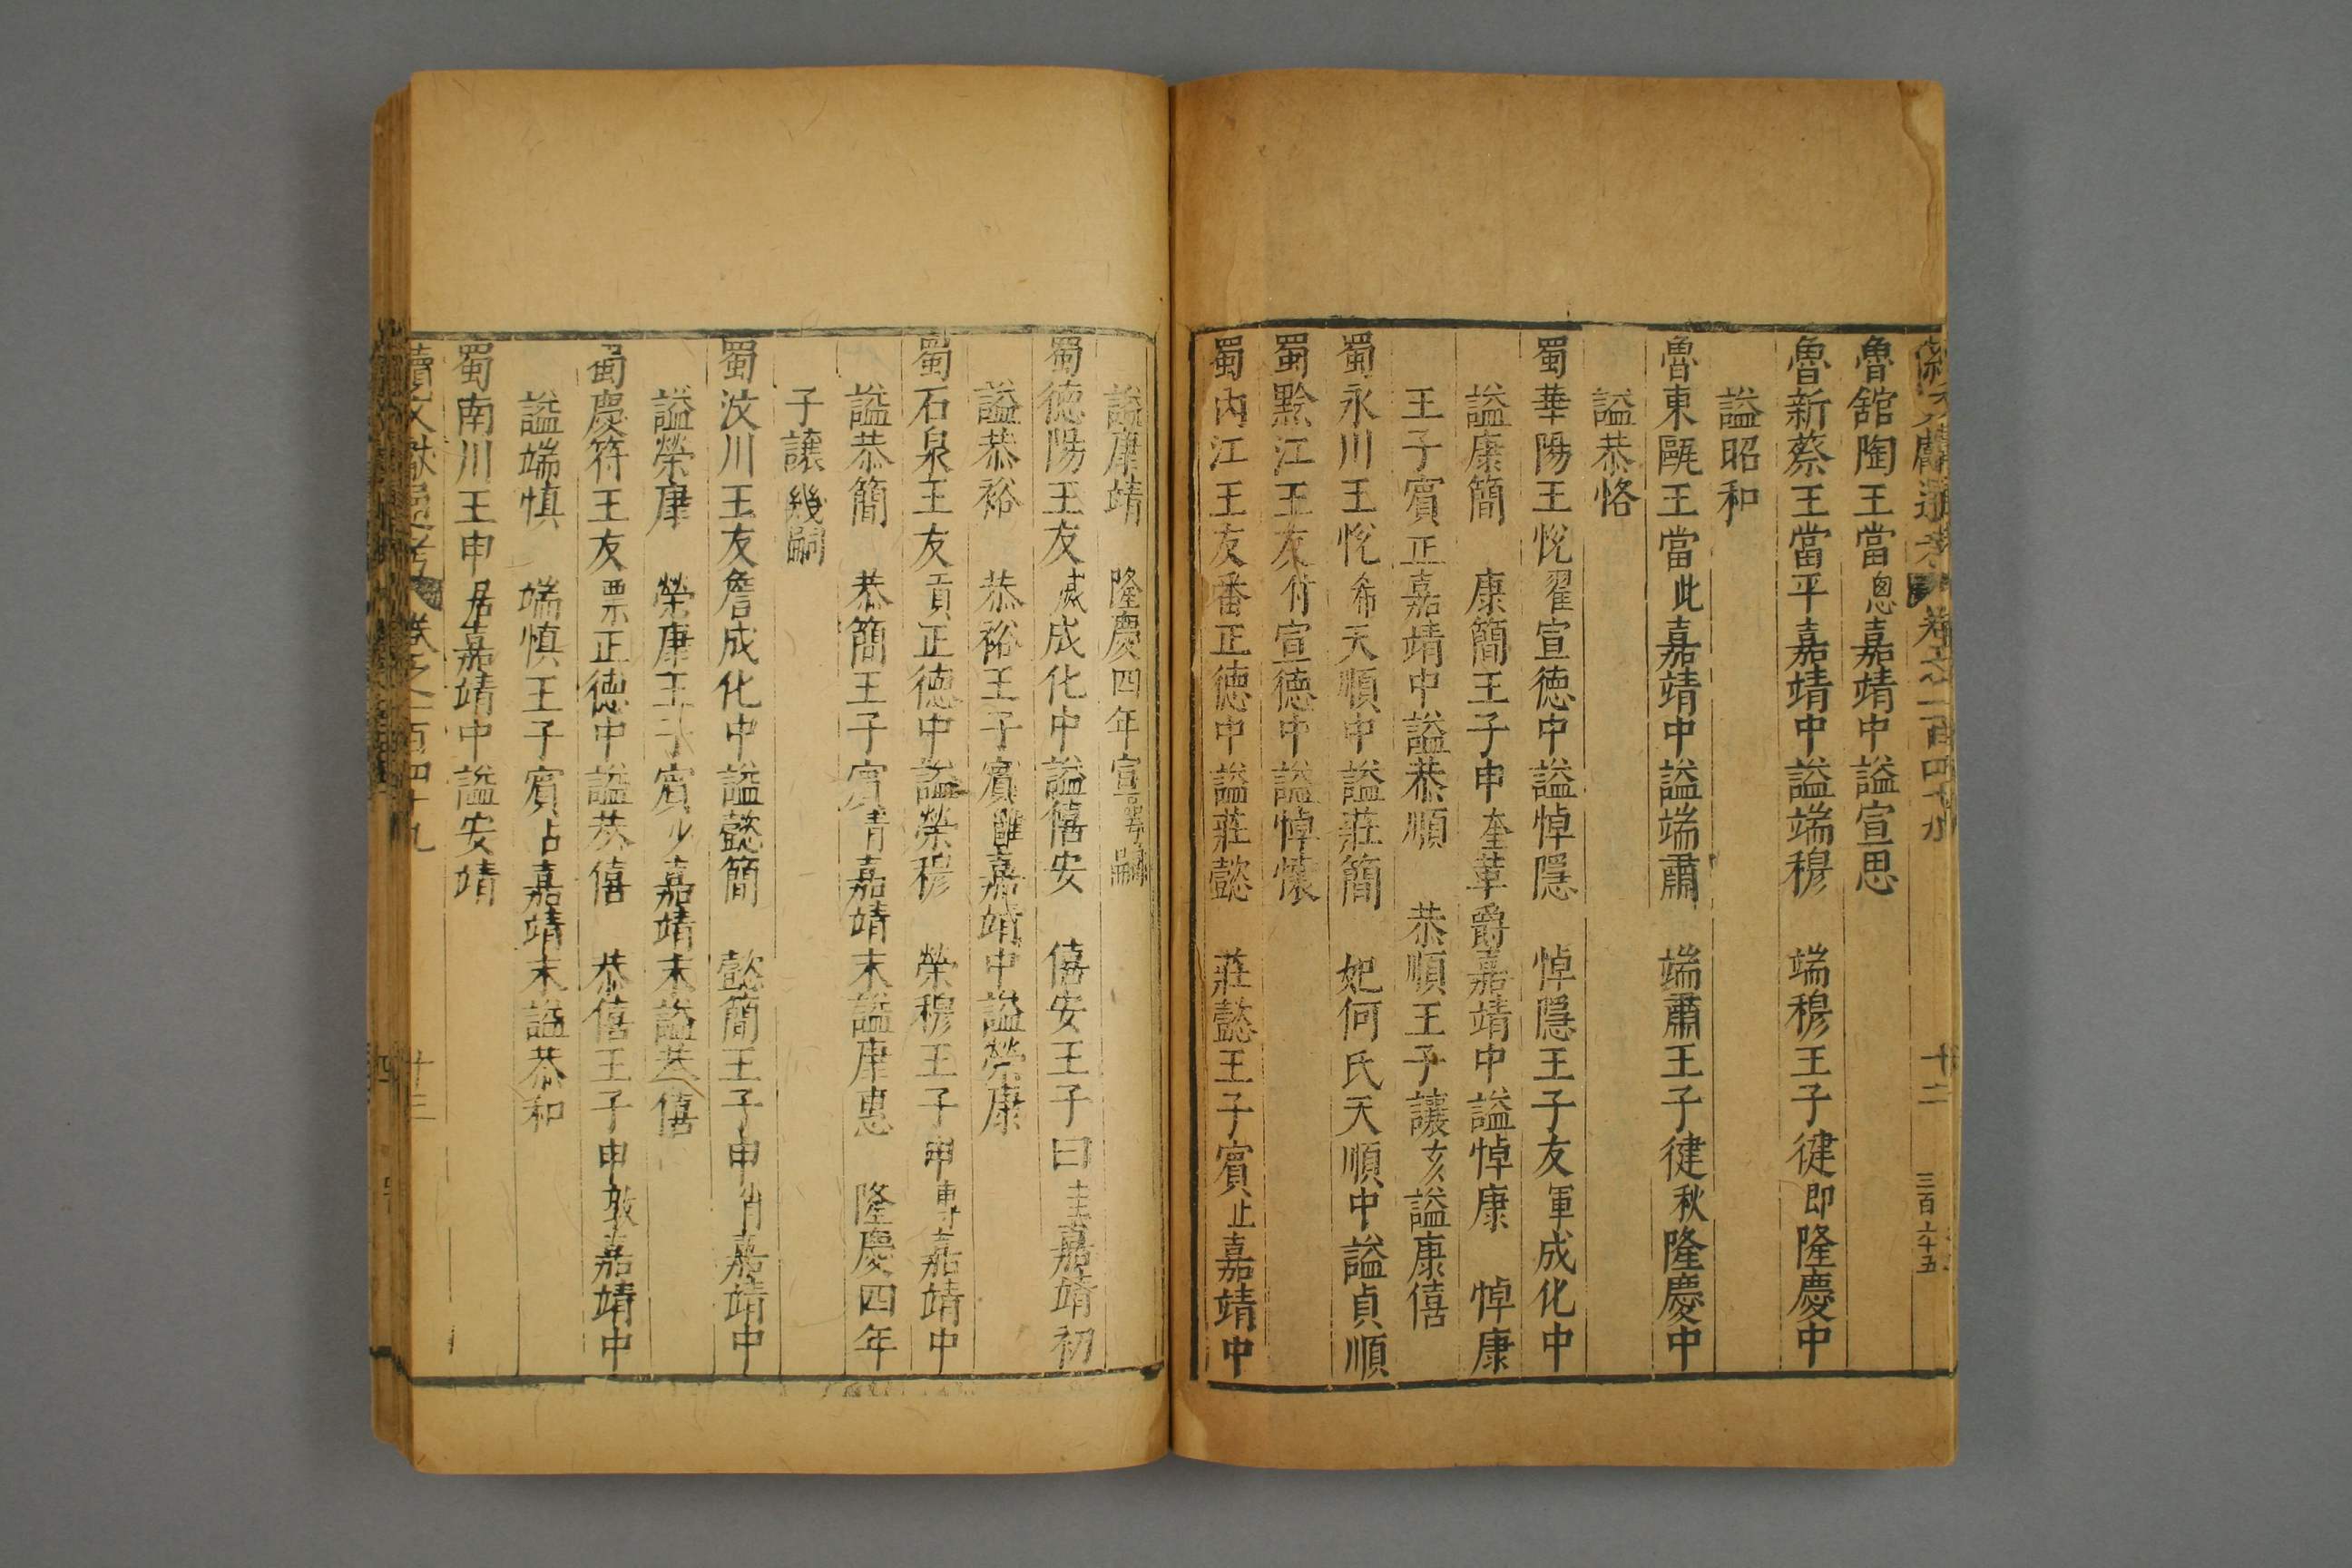 續文獻通考 卷之一百四十九 十二 三百六十五
魯舘陶王當㥟嘉靖中謚宣思
魯新蔡王當平嘉靖中謚端穆 端穆王子健即隆慶中
謚昭和
魯東甌王當此嘉靖中謚端肅 端肅王子健秋隆慶中
謚恭恪
蜀華陽王悅燿宣德中謚悼隱 悼隱王子友軍成化中
謚康簡 康簡王子申奎革爵嘉靖中謚悼康 悼康
王子賓正嘉靖中謚恭順 恭順王子讓亥謚康僖
蜀永川王悅希天順中謚莊簡 妃何氏天順中謚貞順
蜀黔江王友付宣德中謚悼懷
蜀內江王友番正德中謚莊懿 莊懿王子賓止嘉靖中
謚康靖 隆慶四年宣 嗣
蜀德陽王友 成化中謚僖安 僖安王子曰 嘉靖初
謚恭裕 恭裕王子賓 嘉靖中謚榮康
蜀石泉王友 正德中謚榮穆 榮穆王子申專嘉靖中
謚恭簡 恭簡王子賓青嘉靖末謚康惠 隆慶四年
子讓幾嗣
蜀汶川王友詹成化中謚懿簡 懿簡王子申肖嘉靖中
謚榮康 榮康王子賓 嘉靖末謚恭僖
蜀慶符王友票正德中謚恭僖 恭僖王子申放嘉靖中
謚端慎 端慎王子賓占嘉靖末謚恭和
蜀南川王申居嘉靖中謚安靖
續文獻通考 卷之一百四十九 十三